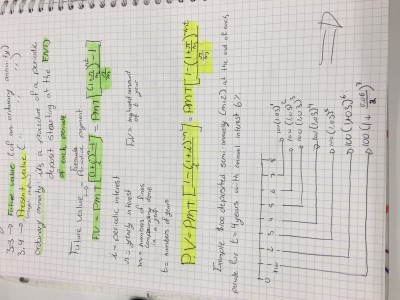 3.3 → Future value (of an ordinary annuity)
3.4 → Present value (
Ordinary annuity: it's a                of a periodic
deposit starting at the END
of each periode
Formula
Future value → Periodic payment
FV = PMT [(1+i)^n - 1 / i] = PMT [(1 + r/m)^mt - 1 / r/m]
i = periodic interest
r = yearly interest
m = numbers of times
compounding done
in a year
t = numbers of years
PV = PMT [1 - (1+i)^-n / i] = PMT [1 - (1 + r/m)^-mt / r/m]
Example: $100 deposited semi-annualy (m=2), at the end of each
periode for t = 4 years with annual interest 6%
0 1 2 3 4 5 6 7 8
100(1.03)
100(1.03)^2
100(1.03)^3
100(1.03)^4
100(1.03)^5
100(1.03)^6